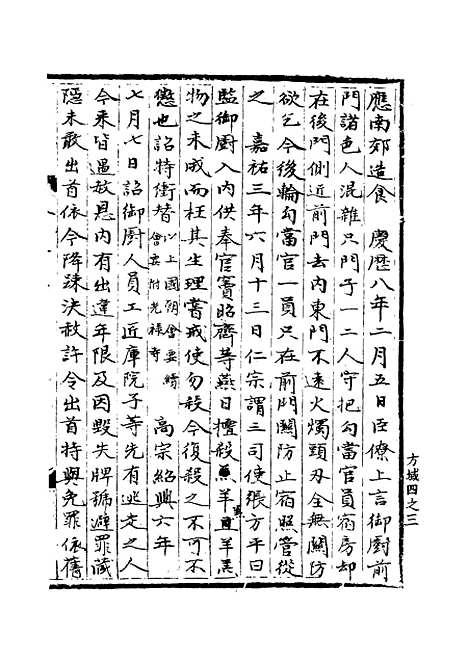 應南郊造食　慶歷八年二月五日臣僚上言御厨前
門諸色人混雜只門子一二人守把勾當官員宿房却
在後門側近前門去内東門不遠火燭頭刃全無關防
欲乞今後輪勾當官一員只在前門關防止宿照管從
之　嘉祐三年六月十三日仁宗謂三司使張方平曰
監御厨入内供奉官竇昭齊等燕日擅殺羊羔
物之未成而枉其生理嘗戒使勿殺今復殺之不可不
懲也詔特衝替以上國朝會要續會要附光禄寺　高宗紹興六年
七月七日詔御厨人員工匠庫院子等先有逃走之人
今来皆遇赦恩内有出違年限及因毁失牌號避罪藏
隠未敢出首依今降踈決赦許令出首特與免罪依舊
方域四之三